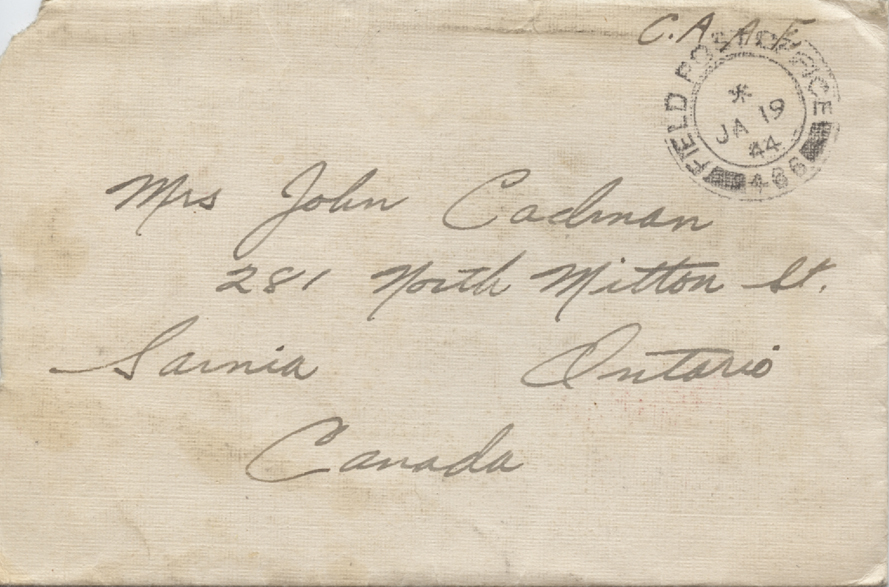 C.A.A.F.
FIELD POST OFFICE
*
JA 19
44
486
Mrs John Cadman
281 North Mitton St.
Sarnia Ontario
Canada